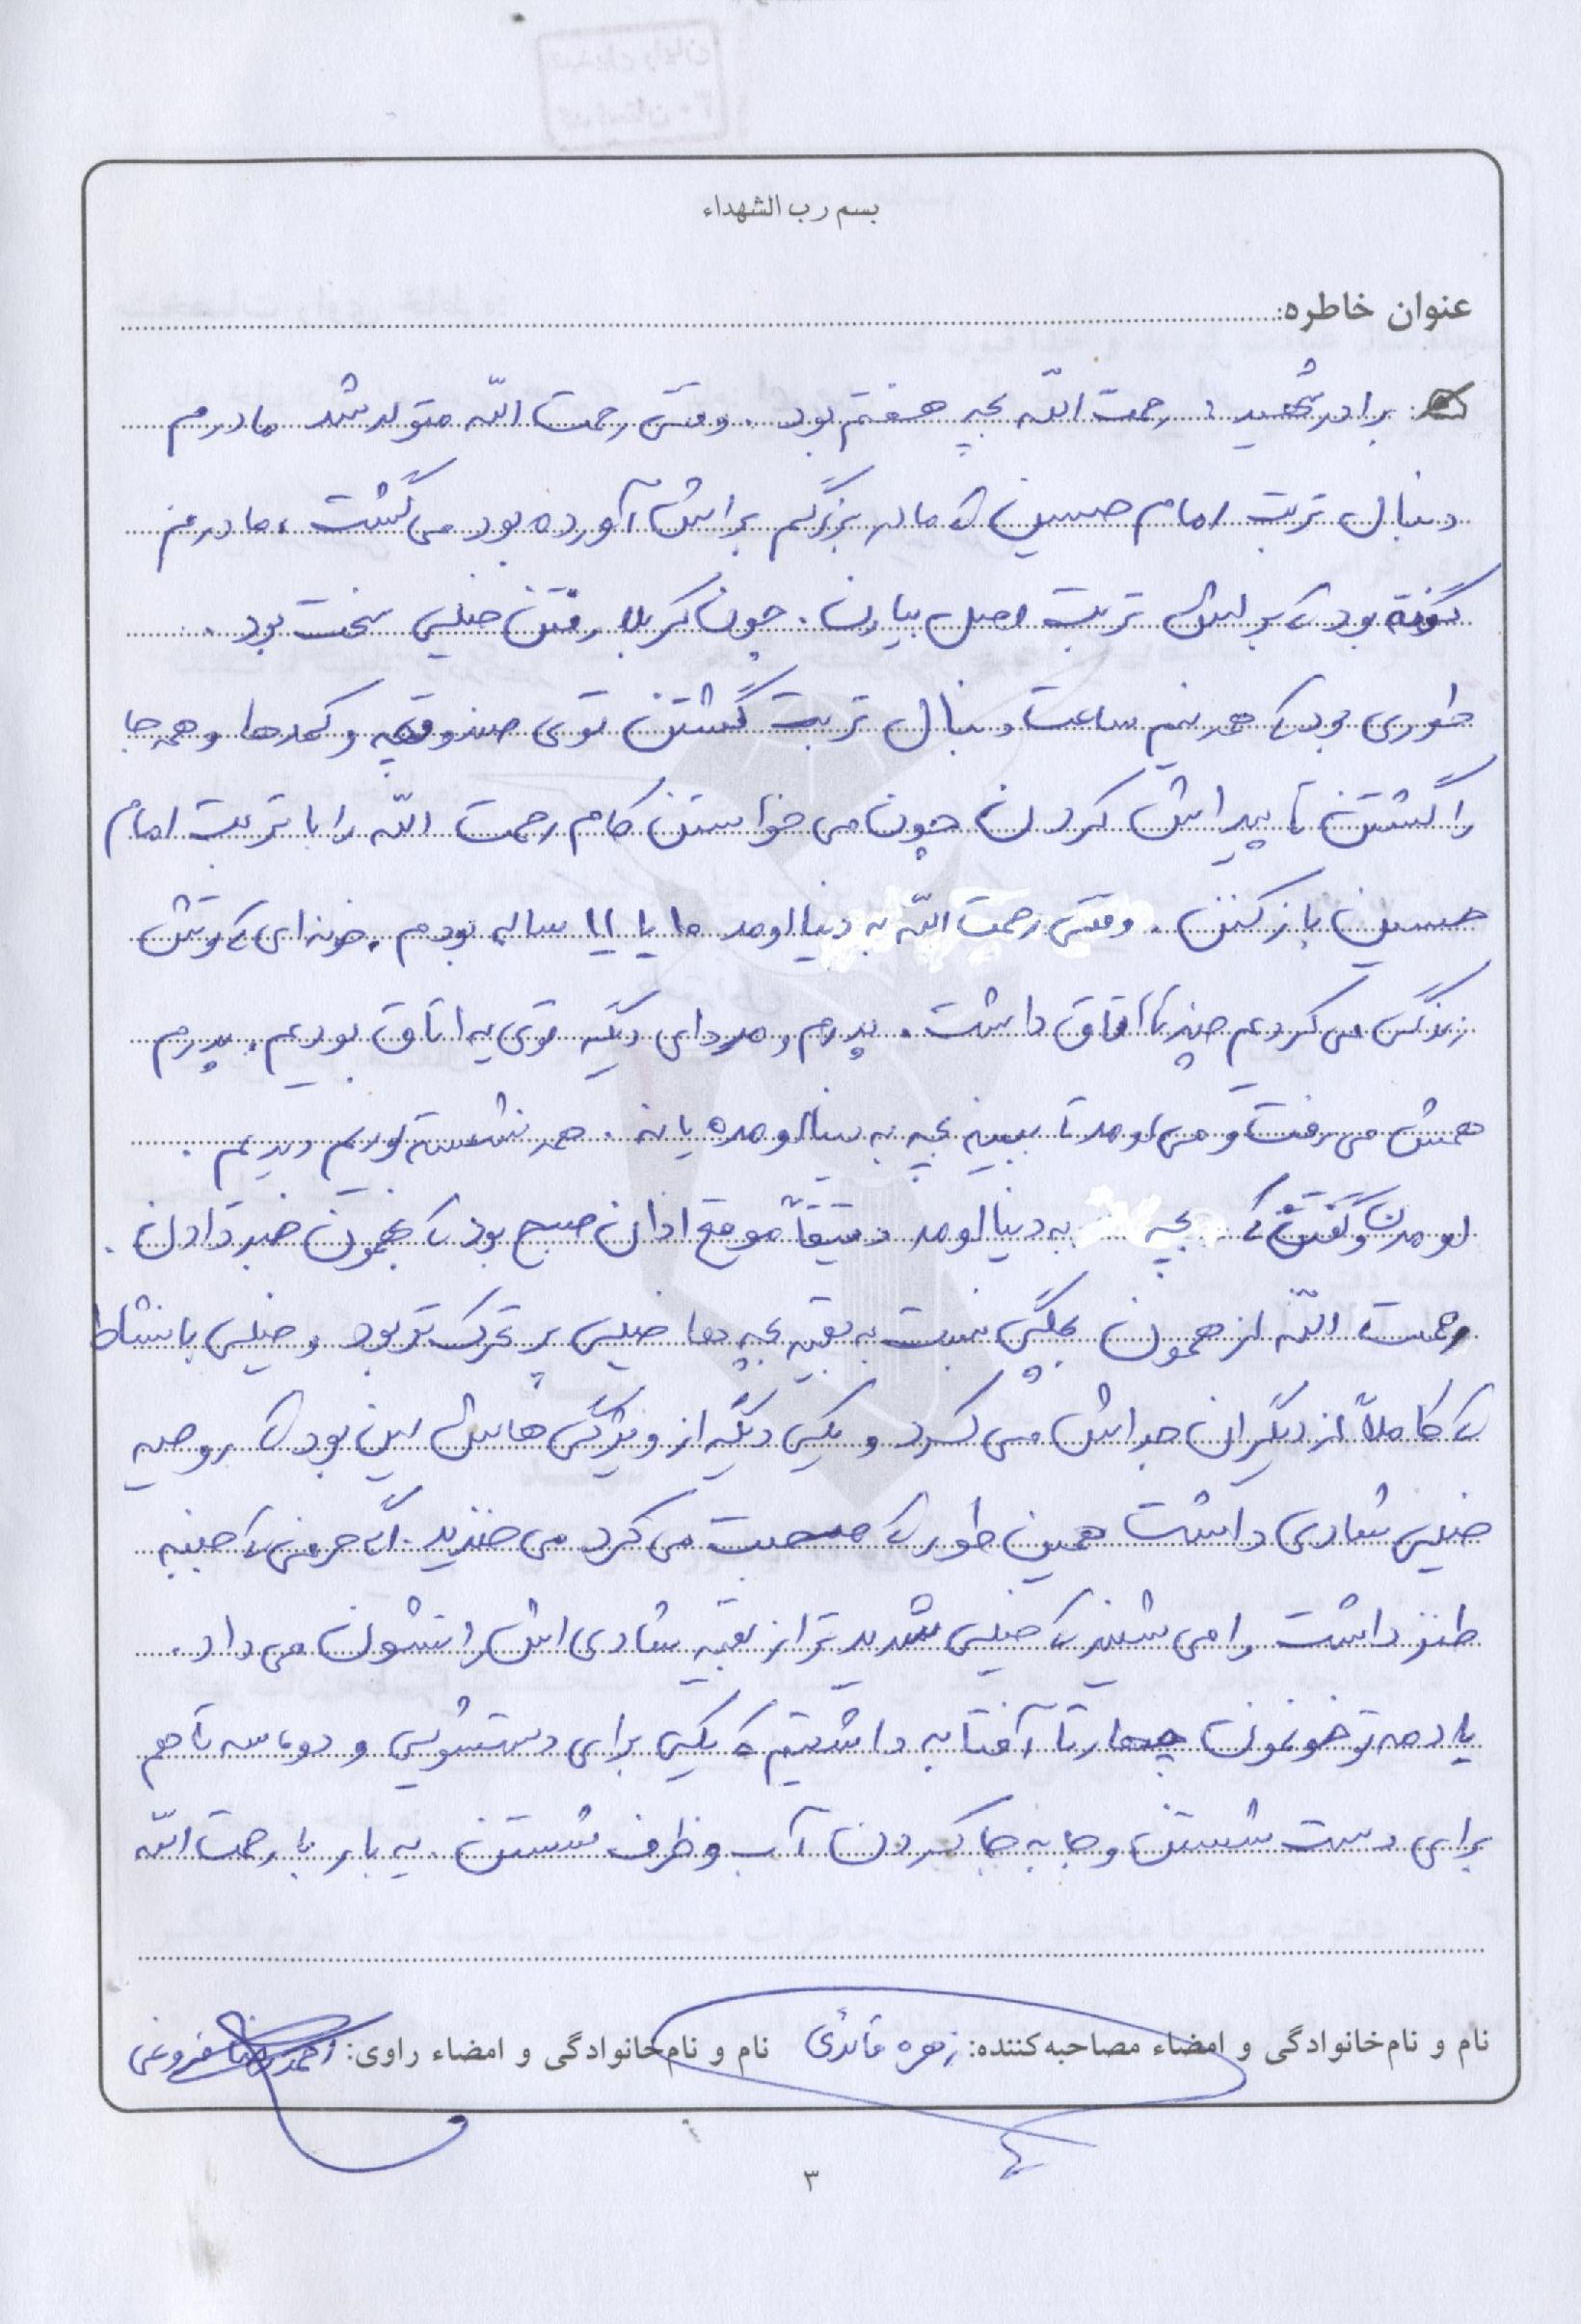 بسم رب الشهداء
عنوان خاطره:
برادر شهید: رحمت اللّه بچه هفتم بود. وقتی رحمت اللّه متولد شد مادرم
دنبال تربت امام حسین که مادر بزرگم براش آورده بود می گشت، مادرم
گفته بود که براش تربت اصل بیارن. چون کربلا رفتن خیلی سخت بود.
طوری بود که همه نیم ساعت دنبال تربت گشتن توی صندوقچه و کمدها و همه جا
را گشتن تا پیداش کردن چون می خواستن کام رحمت اللّه را با تربت امام
حسین باز کنن. وقتی رحمت اللّه به دنیا اومد ۱۰ یا ۱۱ ساله بودم. خونه ای که توش
زندگی می کردیم چند تا اتاق داشت. پدرم و مردای دیگه توی یه اتاق بودیم. پدرم
همش می رفت و می اومد تا ببینه بچه به دنیا اومده یا نه. همه نشسته بودیم دیدیم.
اومدن و گفتن که بچه به دنیا اومد دقیقاً موقع اذان صبح بود که بهمون خبر دادن.
رحمت اللّه از همون بچگی نسبت به بقیه بچه ها خیلی پر تحرک تر بود و خیلی با نشاط
که کاملاً از دیگران جداش می کرد و یکی دیگه از ویژگی هاش این بود که روحیه
خیلی شادی داشت همین طور که صحبت می کرد می خندید. اگه حرفی که جنبه
طنز داشت را می شنید که خیلی شدید تر از بقیه شادی اش را نشون می داد.
یادمه تو خونمون چهارتا آفتابه داشتیم که یکی برای دستشویی و دو، سه تا هم
برای دست شستن و جا به جا کردن آب و ظرف شستن. یه بار با رحمت اللّه
نام و نام‌خانوادگی و امضاء مصاحبه‌کننده: زهره قائدی نام و نام‌خانوادگی و امضاء راوی: احمدرضا فروغی
۳